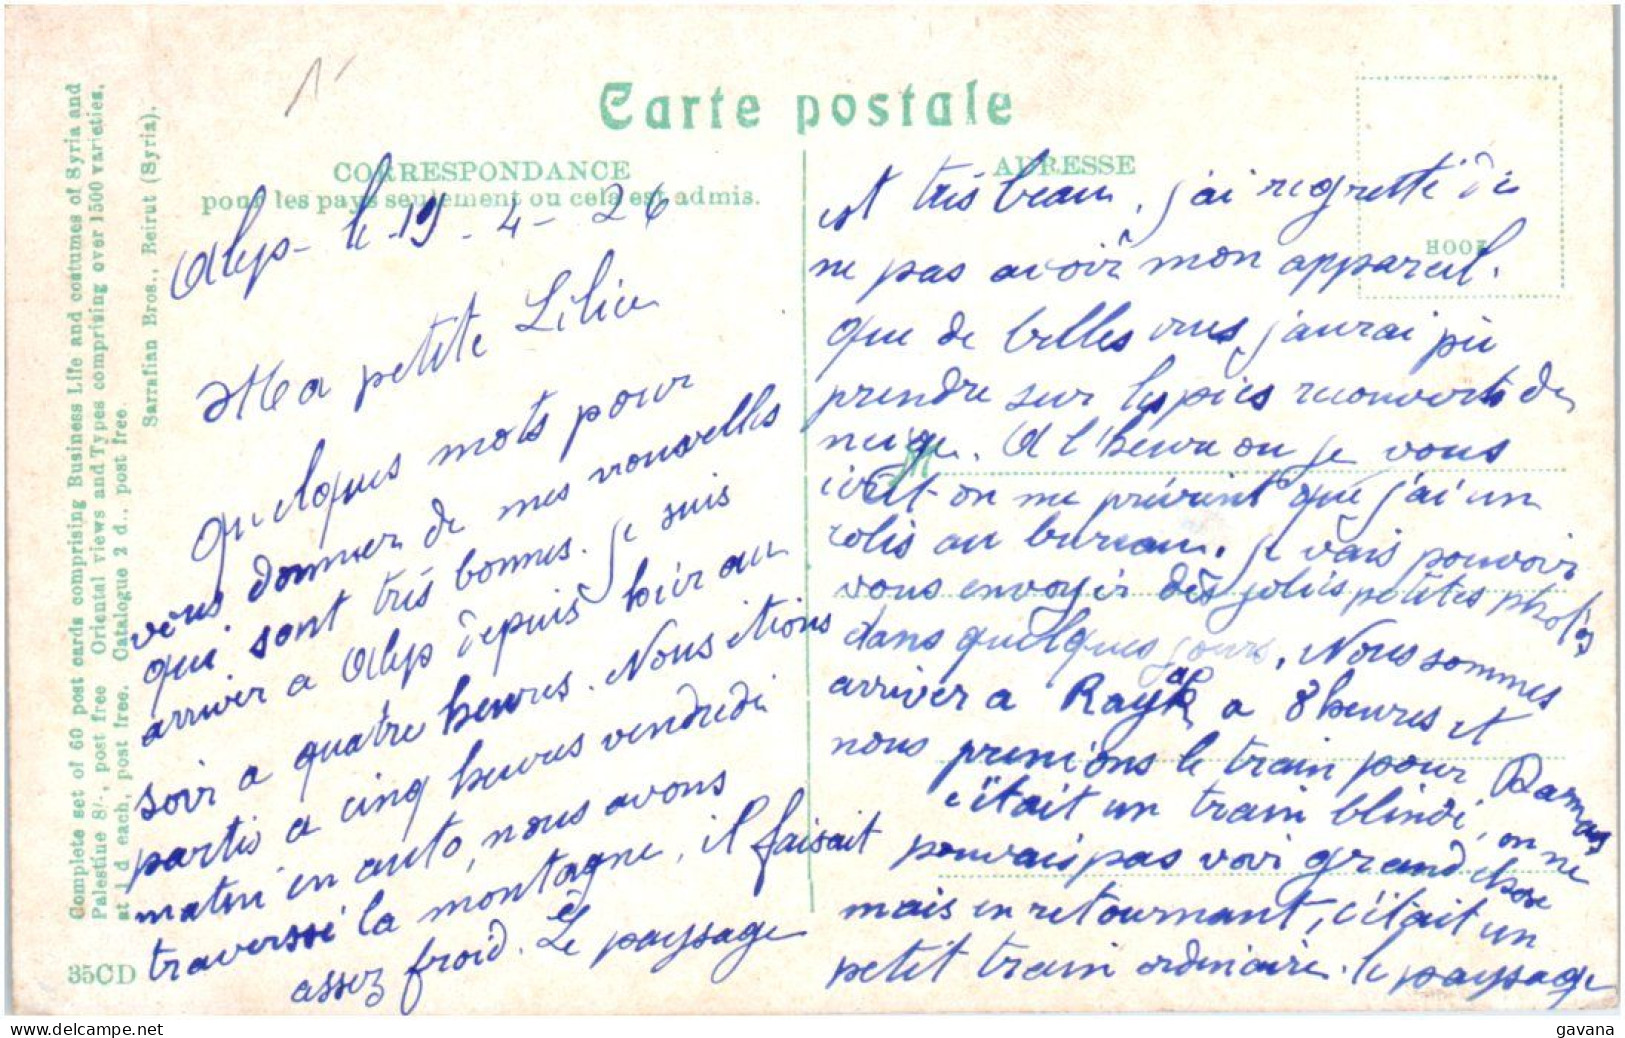 Carte postale
CORRESPONDANCE
pour les pays seulement ou cela est admis.
ADRESSE
Complete set of 60 post cards comprising Business Life and costumes of Syria and
Palestine 8/-, post free Oriental views and Types comprising over 1500 varieties,
at 1 d each, post free. Catalogue 2 d., post free.
Sarrafian Bros., Beirut (Syria).
35CD
Alep - le 19 - 4 - 26
Ma petite Lilie
Quelques mots pour
vous donner de mes nouvelles
qui sont très bonnes. je suis
arriver a Alep depuis hier au
soir a quatre heures. Nous étions
partis a cinq heures vendredi
matin en auto, nous avons
traversé la montagne, il faisait
assez froid. Le paysage
est très beau, j'ai regretté de
ne pas avoir mon appareil.
que de belles vues j'aurai pu
prendre sur les pics recouverts de
neige. A l'heure ou je vous
écrit on me prévient que j'ai un
colis au bureau. je vais pouvoir
vous envoyer des jolies petites photos
dans quelques jours. Nous sommes
arriver a Rayak a 8 heures et
nous prenions le train pour Damas
c'était un train blindé, on ne
pouvais pas voir grand chose
mais en retournant, c'était un
petit train ordinaire. le paysage
gavana